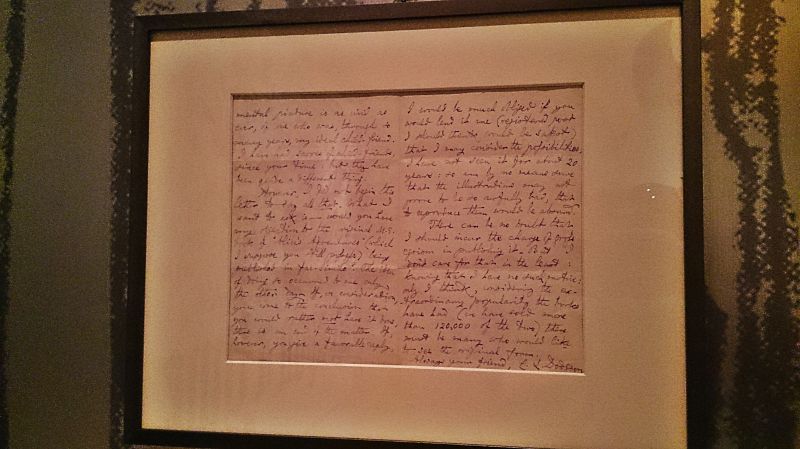 mental picture is as vivid as
ever, of one who was, through so
many years, my ideal child-friend.
I have had scores of child-friends
since your time: but they have
been quite a different thing.
However, I did not begin this
letter to say all that. What I
want to ask is — would you have
any objection to the original M.S.
book of "Alice's Adventures" (which
I suppose you still possess) being
published in fac-simile? The idea
of doing so occurred to me only
the other day. If, on consideration,
you come to the conclusion that
you would rather not have it done,
there is an end of the matter. If,
however, you give a favourable reply,
I would be much obliged if you
would lend it me (registered post
I should think would be safest)
that I may consider the possibilities.
I have not seen it for about 20
years: so am by no means sure
that the illustrations may not
prove to be so awfully bad, that
to reproduce them would be absurd.
There can be no doubt that
I should incur the charge of gross
egoism in publishing it. But I
don't care for that in the least:
knowing that I have no such motive:
only I think, considering the ex-
traordinary popularity the books
have had (we have sold more
than 120,000 of the two) there
must be many who would like
to see the original form.
Always your friend, C. L. Dodgson